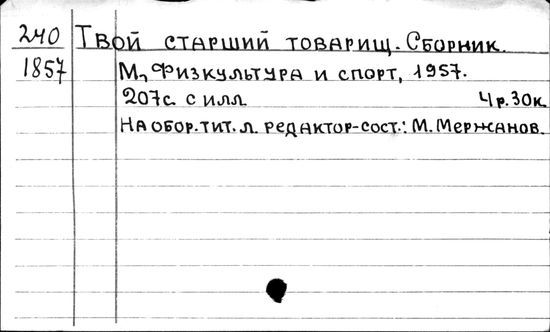 240 Твой старший товарищ. Сборник.
1857 М., Физкультура и спорт, 1957.
207с. с илл. 4р.30к.
На обор.тит.л. редактор-сост.: М. Мержанов.